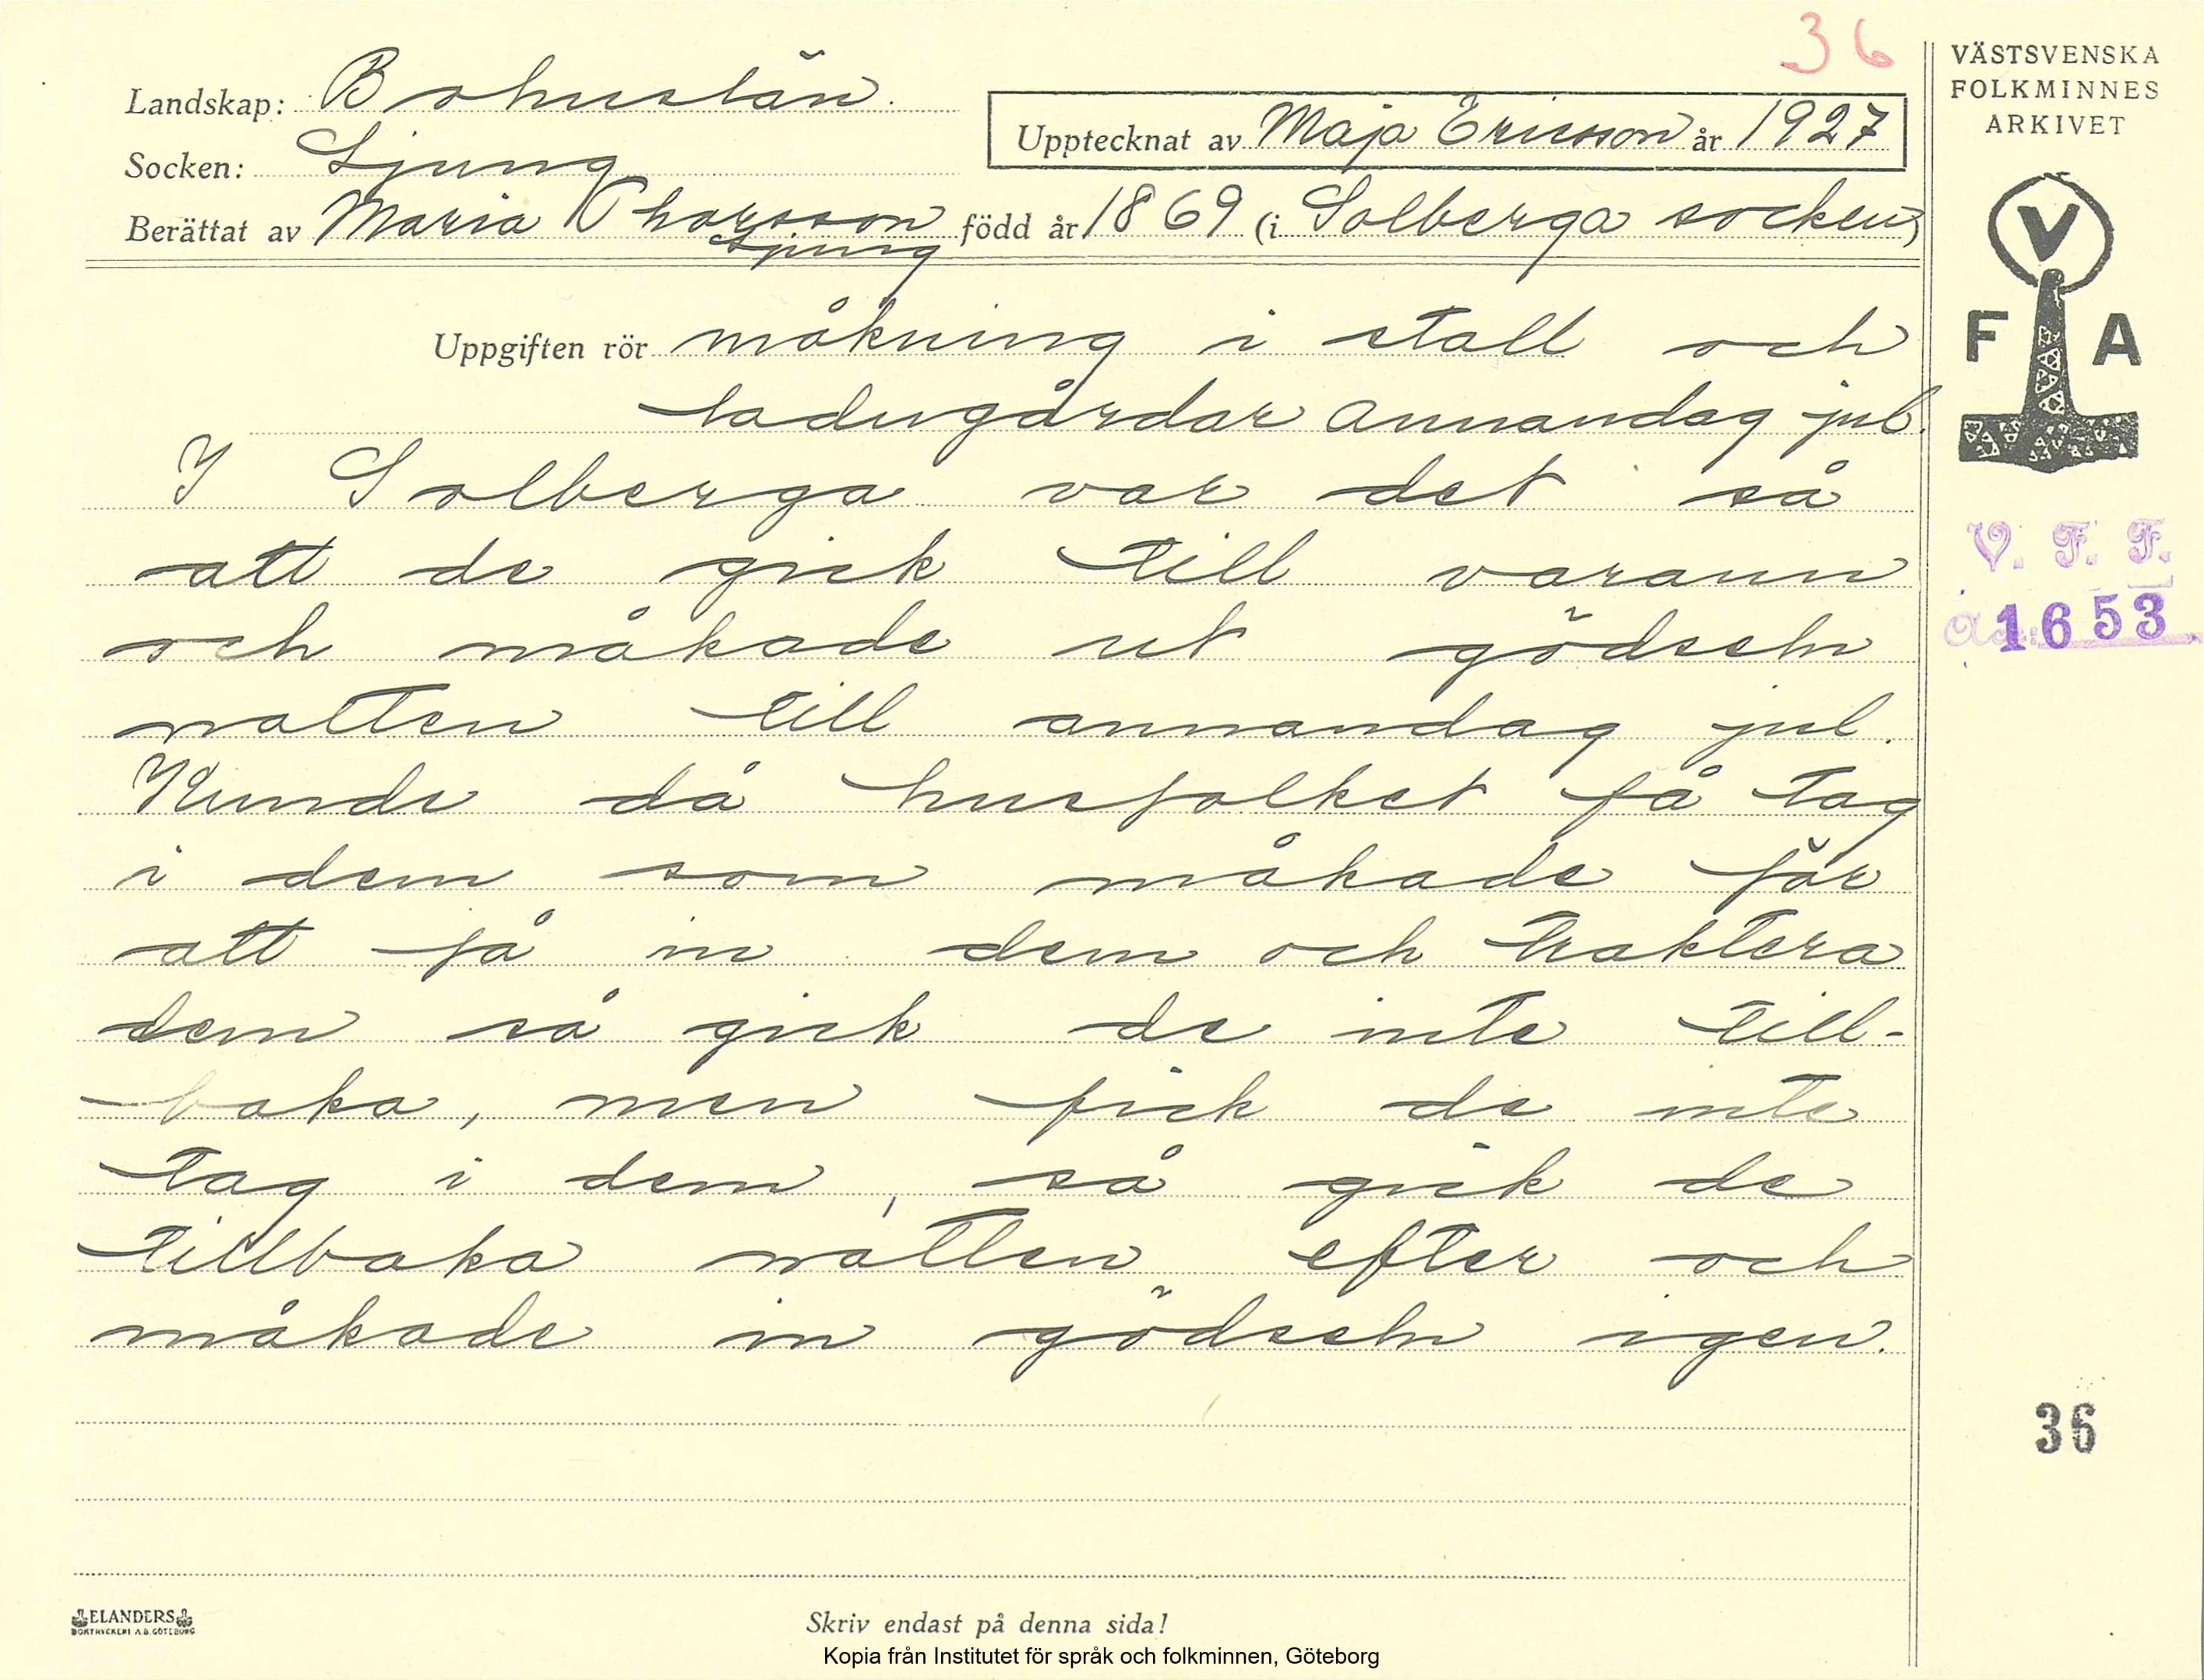 36
VÄSTSVENSKA
FOLKMINNES
ARKIVET
Landskap: Bohuslän.
Upptecknat av Maja Ericsson år 1927
Socken: Ljung
Berättat av Maria född år 1869 (i Solberga socken)
Ljung
V
F A
Uppgiften rör måkning i stall och
ladugårdar annandag jul.
I Solberga var det så
att de gick till varann
och måkade ut gödseln
natten till annandag jul.
Kunde då husfolket få tag
i dem som måkade för
att få in dem och traktera
dem så gick de inte till-
baka, men fick de inte
tag i dem, så gick de
tillbaka natten efter och
måkade in gödseln igen.
V. F. F.
Acc: 1653
36
ELANDERS
BOKTRYCKERI A.B. GÖTEBORG
Skriv endast på denna sida!
Kopia från Institutet för språk och folkminnen, Göteborg